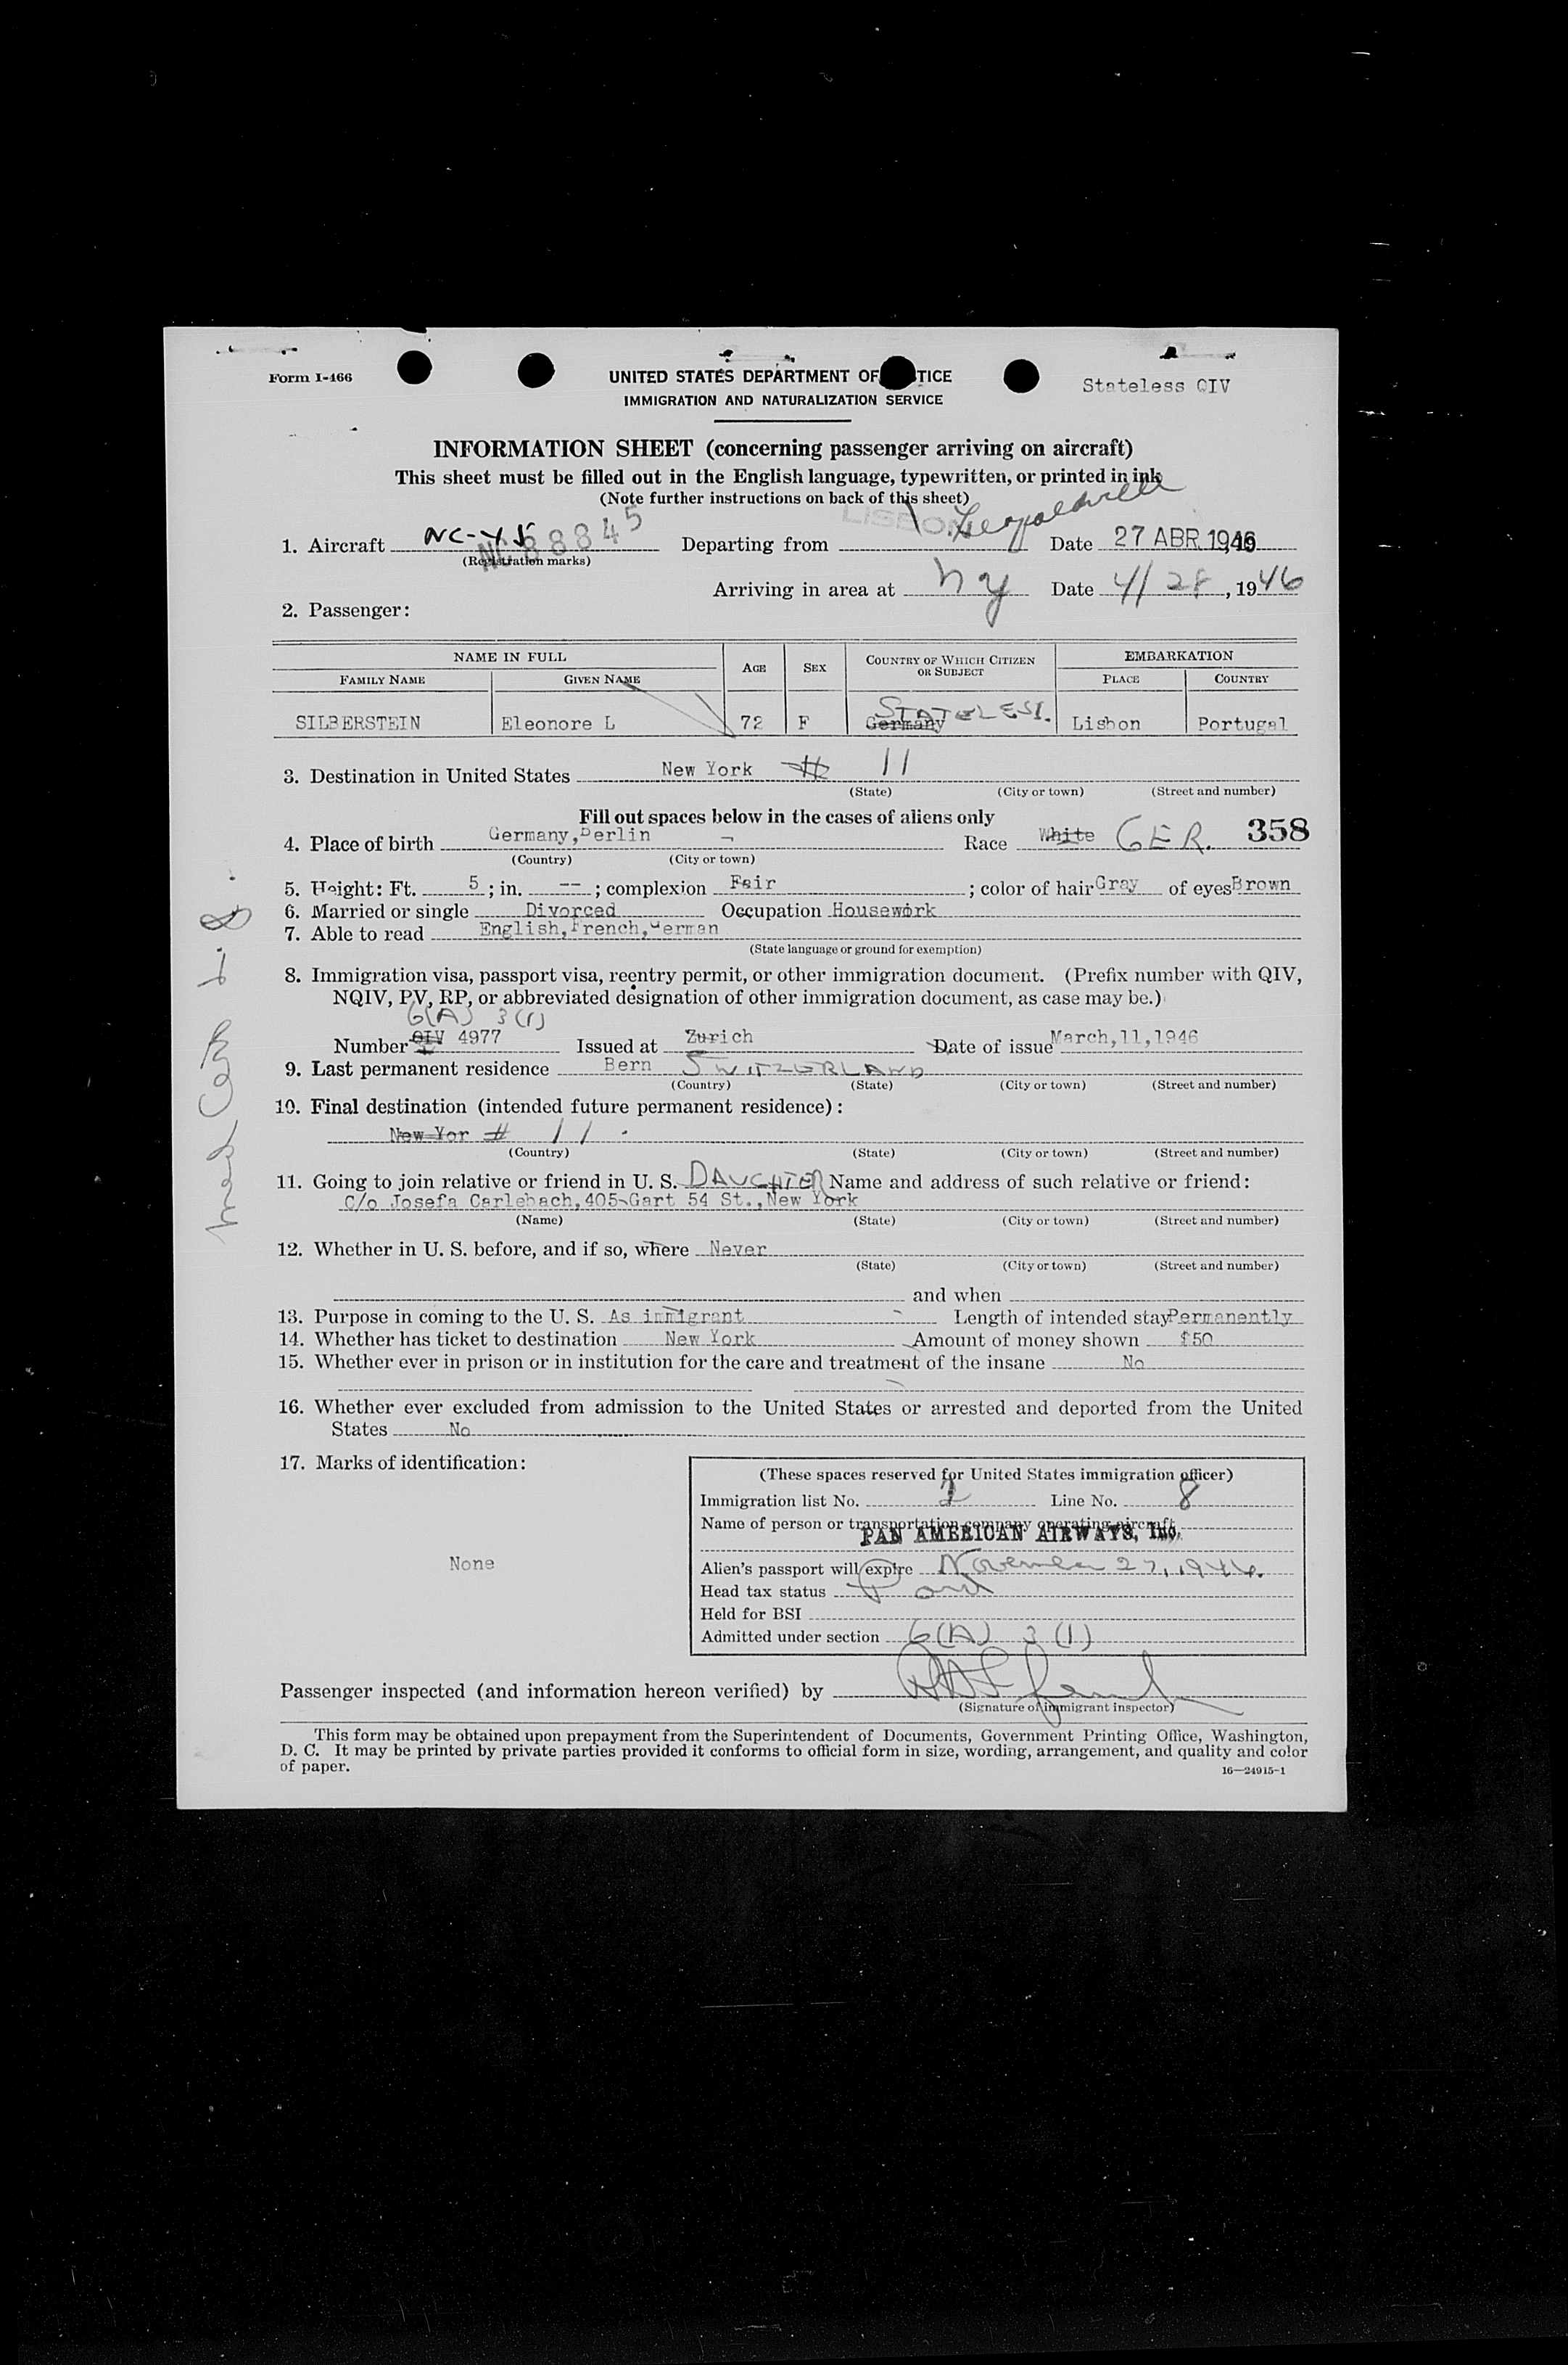 Form I-466
UNITED STATES DEPARTMENT OF TICE
Stateless QIV
IMMIGRATION AND NATURALIZATION SERVICE
INFORMATION SHEET (concerning passenger arriving on aircraft)
This sheet must be filled out in the English language, typewritten, or printed in ink
(Note further instructions on back of this sheet)
1. Aircraft NC 88845 Departing from LISBON Leopoldville Date 27 ABR. 1946
(Registration marks)
Arriving in area at NY Date 4/28, 1946
2. Passenger:
NAME IN FULL AGE SEX COUNTRY OF WHICH CITIZEN OR SUBJECT EMBARKATION
FAMILY NAME GIVEN NAME PLACE COUNTRY
STATELESS.
SILBERSTEIN Eleonore L 72 F Germany Lisbon Portugal
3. Destination in United States New York # 11
(State) (City or town) (Street and number)
Fill out spaces below in the cases of aliens only
4. Place of birth Germany, Berlin Race White GER. 358
(Country) (City or town)
5. Height: Ft. 5; in. --; complexion Fair; color of hair Gray of eyes Brown
6. Married or single Divorced Occupation Housework
7. Able to read English, French, German
(State language or ground for exemption)
8. Immigration visa, passport visa, reentry permit, or other immigration document. (Prefix number with QIV,
NQIV, PV, RP, or abbreviated designation of other immigration document, as case may be.)
6(A) 3(1)
Number QIV 4977 Issued at Zurich Date of issue March, 11, 1946
9. Last permanent residence Bern SWITZERLAND
(Country) (State) (City or town) (Street and number)
10. Final destination (intended future permanent residence):
New Yor # 11
(Country) (State) (City or town) (Street and number)
11. Going to join relative or friend in U. S. DAUGHTER Name and address of such relative or friend:
C/o Josefa Carlebach, 405-Gart 54 St., New York
(Name) (State) (City or town) (Street and number)
12. Whether in U. S. before, and if so, where Never
(State) (City or town) (Street and number)
and when
13. Purpose in coming to the U. S. As immigrant Length of intended stay Permanently
14. Whether has ticket to destination New York Amount of money shown $50
15. Whether ever in prison or in institution for the care and treatment of the insane No
16. Whether ever excluded from admission to the United States or arrested and deported from the United
States No
17. Marks of identification:
None
(These spaces reserved for United States immigration officer)
Immigration list No. 2 Line No. 8
Name of person or transportation company operating aircraft
PAN AMERICAN AIRWAYS, Inc.
Alien's passport will expire November 27, 1946.
Head tax status Paid
Held for BSI
Admitted under section 6(A) 3(1)
Passenger inspected (and information hereon verified) by
(Signature of immigrant inspector)
This form may be obtained upon prepayment from the Superintendent of Documents, Government Printing Office, Washington,
D. C. It may be printed by private parties provided it conforms to official form in size, wording, arrangement, and quality and color
of paper.
16—24915-1